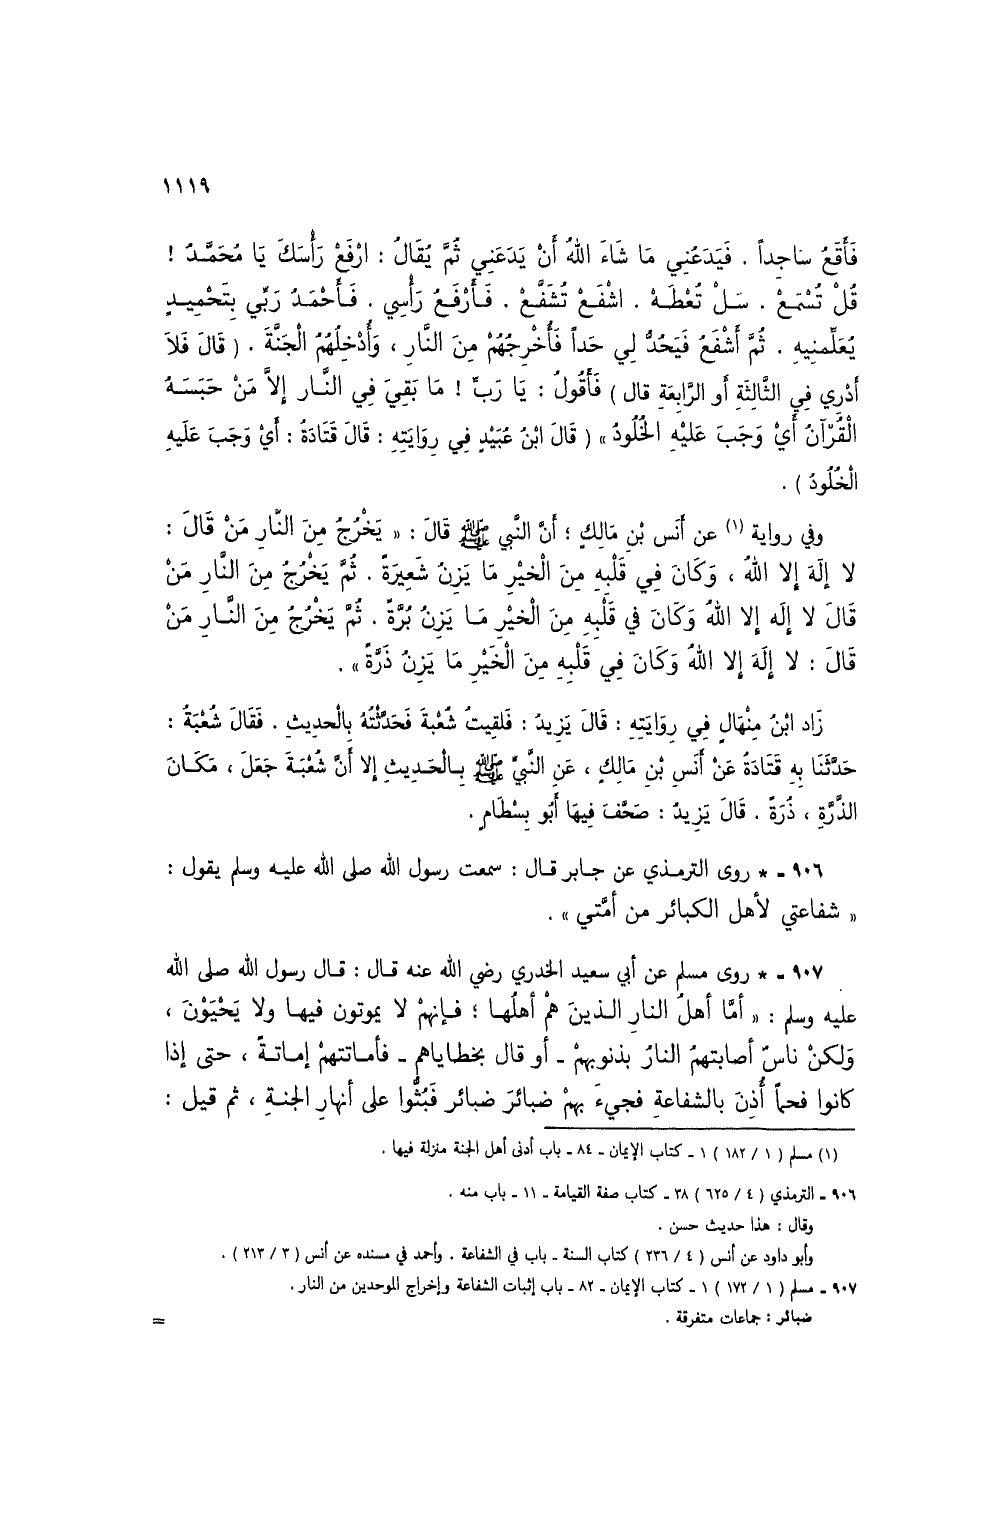 ١١١٩
فَأَقَعُ سَاجِداً . فَيَدَعُنِي مَا شَاءَ اللهُ أَنْ يَدَعَنِي ثُمَّ يُقَالُ : ارْفَعْ رَأْسَكَ يَا مُحَمَّدُ !
قُلْ تُسْمَعْ . سَلْ تُعْطَهْ . اشْفَعْ تُشَفَّعْ . فَأَرْفَعُ رَأْسِي . فَأَحْمَدُ رَبِّي بِتَحْمِيدٍ
يُعَلِّمنِيهِ . ثُمَّ أَشْفَعُ فَيَحُدُّ لِي حَداً فَأُخْرِجُهُمْ مِنَ النَّارِ ، وَأُدْخِلُهُمُ الْجَنَّةَ . ( قَالَ فَلاَ
أَدْرِي فِي الثَّالِثَةِ أو الرَّابِعَةِ قال ) فَأَقُولُ : يَا رَبِّ ! مَا بَقِيَ فِي النَّارِ إلاَّ مَنْ حَبَسَهُ
الْقُرْآنُ أَيْ وَجَبَ عَلَيْهِ الخُلُودُ » ( قَالَ ابْنُ عُبَيْدٍ فِي رِوَايَتِهِ : قَالَ قَتَادَةُ : أَيْ وَجَبَ عَلَيهِ
الْخُلُودُ ) .
وفي رواية (١) عن أَنَس بْنِ مَالِكٍ ؛ أَنَّ النَّبي ﷺ قَالَ : « يَخْرُجُ مِنَ النَّارِ مَنْ قَالَ :
لا إلَهَ إلا اللهُ ، وَكَانَ فِي قَلْبِهِ مِنَ الْخيْرِ مَا يَزِنُ شَعِيرَةً . ثُمَّ يَخْرُجُ مِنَ النَّارِ مَنْ
قَالَ لا إلَه إلا اللهُ وَكَانَ في قَلْبِهِ مِنَ الْخيْرِ مَا يَزِنُ بُرَّةً . ثُمَّ يَخْرُجُ مِنَ النَّارِ مَنْ
قَالَ : لا إلَهَ إلا اللهُ وَكَانَ فِي قَلْبِهِ مِنَ الْخَيْرِ مَا يَزِنُ ذَرَّةً » .
زَاد ابْنُ مِنْهَالٍ فِي رِوَايَتِهِ : قَالَ يَزِيدُ : فَلقِيتُ شُعْبةَ فَحَدَّثْتُهُ بِالْحدِيثِ . فَقَالَ شُعْبَةُ :
حَدَّثَنَا بِهِ قَتَادَةُ عَنْ أَنَسِ بْنِ مَالِكٍ ، عَنِ النَّبيِّ ﷺ بِالْحَدِيثِ إلا أنَّ شُعْبَةَ جَعَلَ ، مَكَانَ
الذَّرَّةِ ، ذُرَةً . قَالَ يَزِيدُ : صَحَّفَ فِيهَا أَبُو بِسْطَامٍ .
٩٠٦ - * روى الترمذي عن جابر قال : سمعت رسول الله صلى الله عليه وسلم يقول :
« شفاعتي لأهل الكبائر من أمَّتي » .
٩٠٧ - * روى مسلم عن أبي سعيد الخدري رضي الله عنه قال : قال رسول الله صلى الله
عليه وسلم : « أمَّا أهلُ النارِ الذينَ همْ أهلُها ؛ فإنهمْ لا يموتون فيها ولا يَحْيَوْنَ ،
وَلكنْ ناسٌ أصابتهمُ النارُ بذنوبِهمْ - أو قال بخطاياهم - فأماتتهمْ إماتةً ، حتى إذا
كانوا فحماً أُذِنَ بالشفاعةِ فجيءَ بهمْ ضبائرَ ضبائر فَبُثُّوا على أنهارِ الجنةِ ، ثم قيل :
(١) مسلم ( ١ / ١٨٢ ) ١ - كتاب الإيمان - ٨٤ - باب أدنى أهل الجنة منزلة فيها .
٩٠٦ - الترمذي ( ٤ / ٦٢٥ ) ٣٨ - كتاب صفة القيامة - ١١ - باب منه .
وقال : هذا حديث حسن .
وأبو داود عن أنس ( ٤ / ٢٣٦ ) كتاب السنة - باب في الشفاعة . وأحمد في مسنده عن أنس ( ٣ / ٢١٣ ) .
٩٠٧ - مسلم ( ١ / ١٧٢ ) ١ - كتاب الإيمان - ٨٢ - باب إثبات الشفاعة وإخراج الموحدين من النار .
ضبائر : جماعات متفرقة .
=